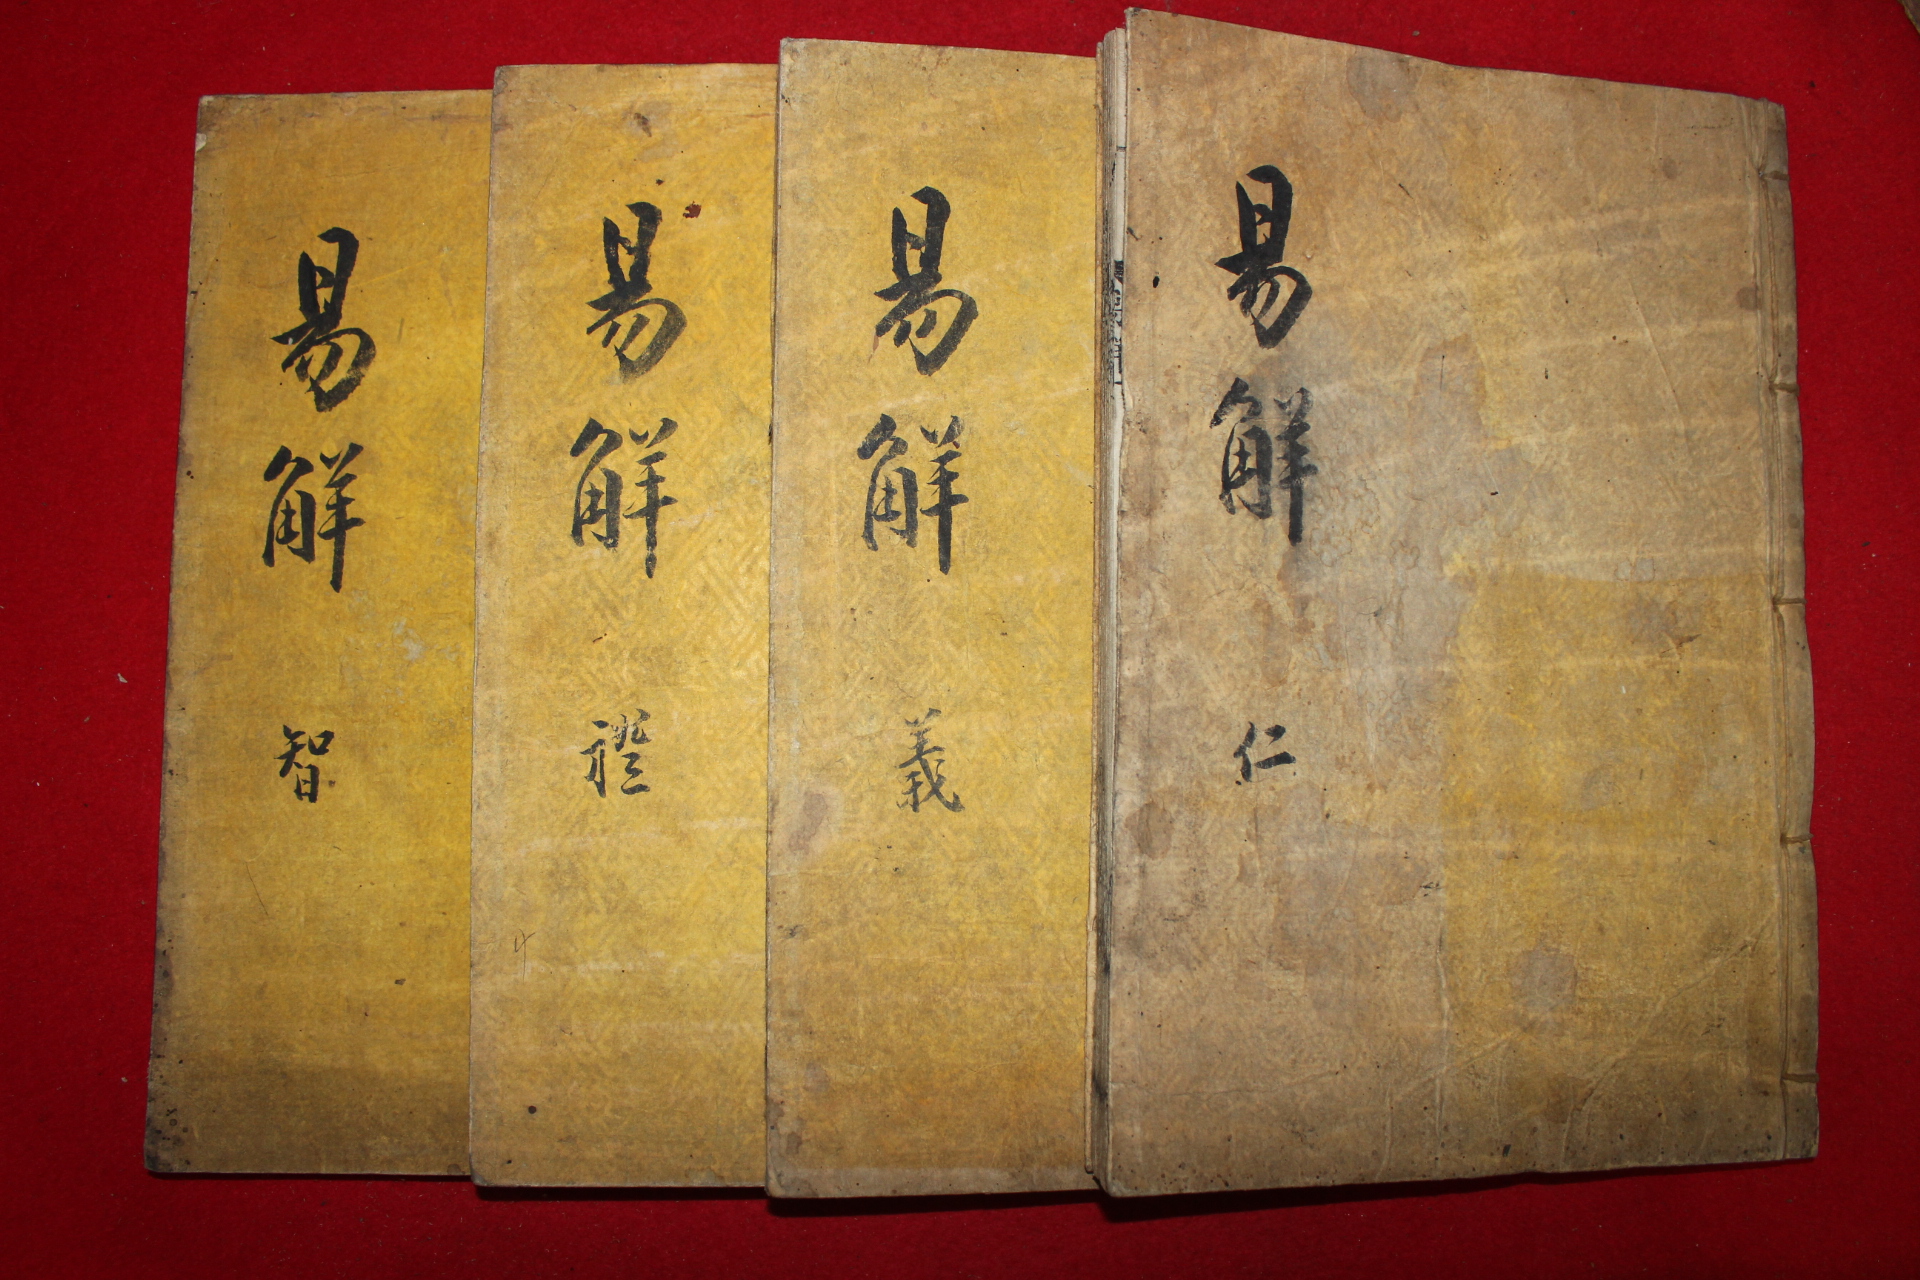 易解 仁
易解 義
易解 禮
易解 智